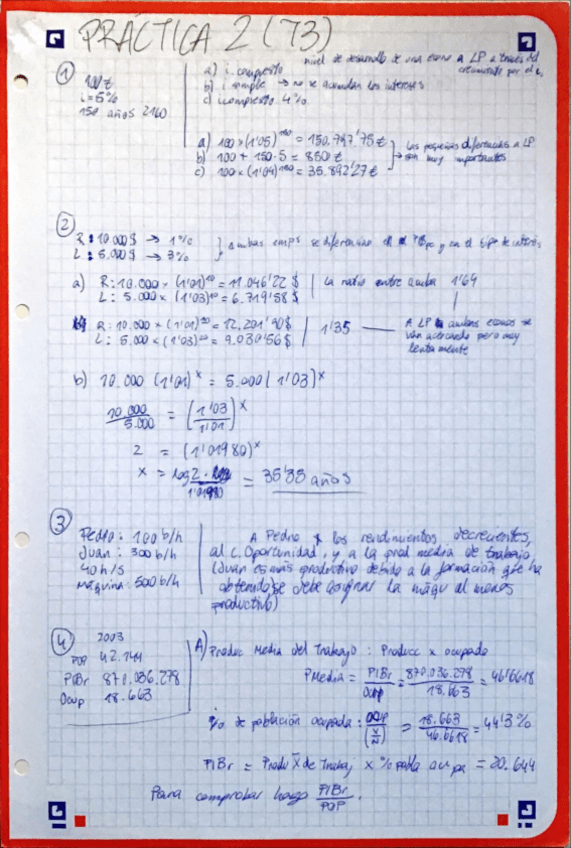 PRÁCTICA 2 (T3)
nivel de desarrollo de una econo a LP a través del
1
100 €
i = 5%
150 años 2160
a) i. compuesto
b) i simple → no se acumulan los intereses
c) i compuesto 4%.
a) 100 × (1'05)¹⁵⁰ = 150.797'75 €
b) 100 + 150·5 = 850 €
c) 100 × (1'04)¹⁵⁰ = 35.892'27 €
Las pequeñas diferencias a LP
son muy importantes
2
R: 10.000$ → 1%
L: 5.000$ → 3%
ambas emps se diferencian el y en el tipo de interés
a) R: 10.000 × (1'01)¹⁰ = 11.046'22 $
L: 5.000 × (1'03)¹⁰ = 6.719'58 $
La ratio entre ambas 1'64
R: 10.000 × (1'01)²⁰ = 12.201'90 $
L: 5.000 × (1'03)²⁰ = 9.030'56 $
1'35
A LP ambas econos se
van acercando pero muy
lentamente
b) 10.000 (1'01)ˣ = 5.000 (1'03)ˣ
10.000 / 5.000 = (1'03 / 1'01)ˣ
2 = (1'01980)ˣ
x = log 2 / 1'01980 = 35'35 años
3
Pedro: 100 b/h
Juan: 300 b/h
40 h/s
máquina: 500 b/h
A Pedro x los rendimientos decrecientes,
al C. Oportunidad, y a la prod media de trabajo
(Juan es más productivo debido a la formación que ha
obtenido) se debe asignar la máqu al menos
productivo)
4
2003
POP 42.144
PIBr 870.036.278
Ocup 18.663
A) Produc Media del Trabajo: Producc x ocupado
PMedia = PIBr / OCUP = 870.036.278 / 18.663 = 46'6618
% de población ocupada: = 18.663 / 46.6618 = 44'3%
PIBr = Produ x̄ de Trabaj x % pobla ocupa = 20.644
Para comprobar hago PIBr / POP.